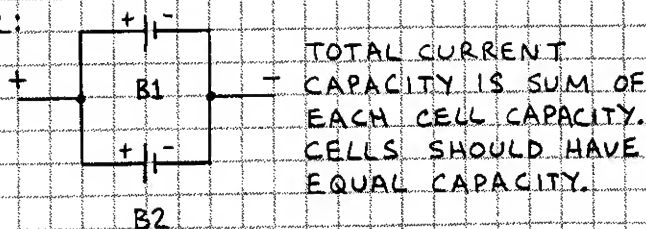 L:
+ -
B1
+ -
+ -
B2
TOTAL CURRENT
CAPACITY IS SUM OF
EACH CELL CAPACITY.
CELLS SHOULD HAVE
EQUAL CAPACITY.